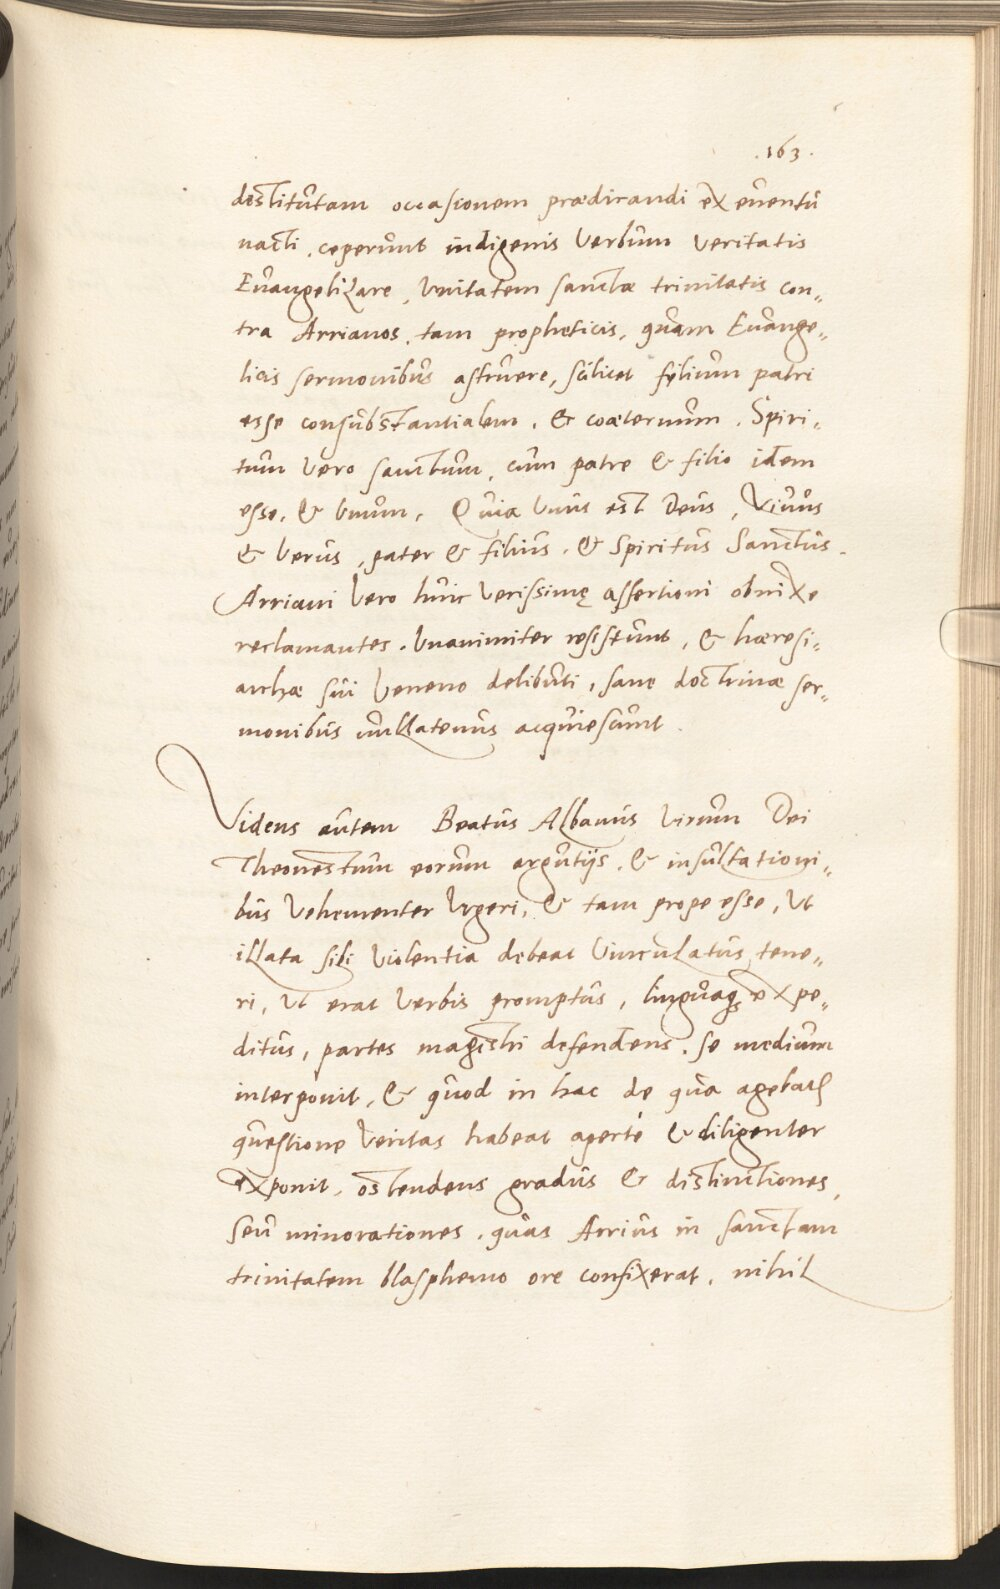 .163.
destitutam occasionem prædicandi ex euentu
nacti, ceperunt indigenis Verbum veritatis
Euangelizare, Vnitatem sanctæ trinitatis con„
tra Arrianos, tam propheticis, quam Euange„
licis sermonibus astruere, scilicet fylium patri
esse consubstantialem, & coæternum. Spiri„
tum Vero sanctum, cum patre & filio idem
esse, & Vnum, Quia Vnus est Deus, Viuus
& Verus, pater & filius, & Spiritus Sanctus.
Arriani Vero huic Verissimę assertioni obnixe
reclamantes, Vnanimiter resistunt, & hæresi„
archæ sui Veneno delibuti, sanę doctrinæ ser„
monibus nullatenus acquiescunt.
Videns autem Beatus Albanus Virum Dei
Theonestum eorum argutijs, & insultationi„
bus Vehementer Vrgeri, & tam prope esse, Vt
illata sibi Violentia debeat Vinculatus tene„
ri, Vt erat Verbis promptus, linguaqꝫ expe„
ditus, partes magistri defendens, se medium
interponit, & quod in hac de qua agebatꝭ
questione Veritas habeat aperté & diligenter
exponit, ostendens gradus & distinctiones,
seu minorationes, quas Arrius in sanctam
trinitatem blasphemo ore confixerat, nihil